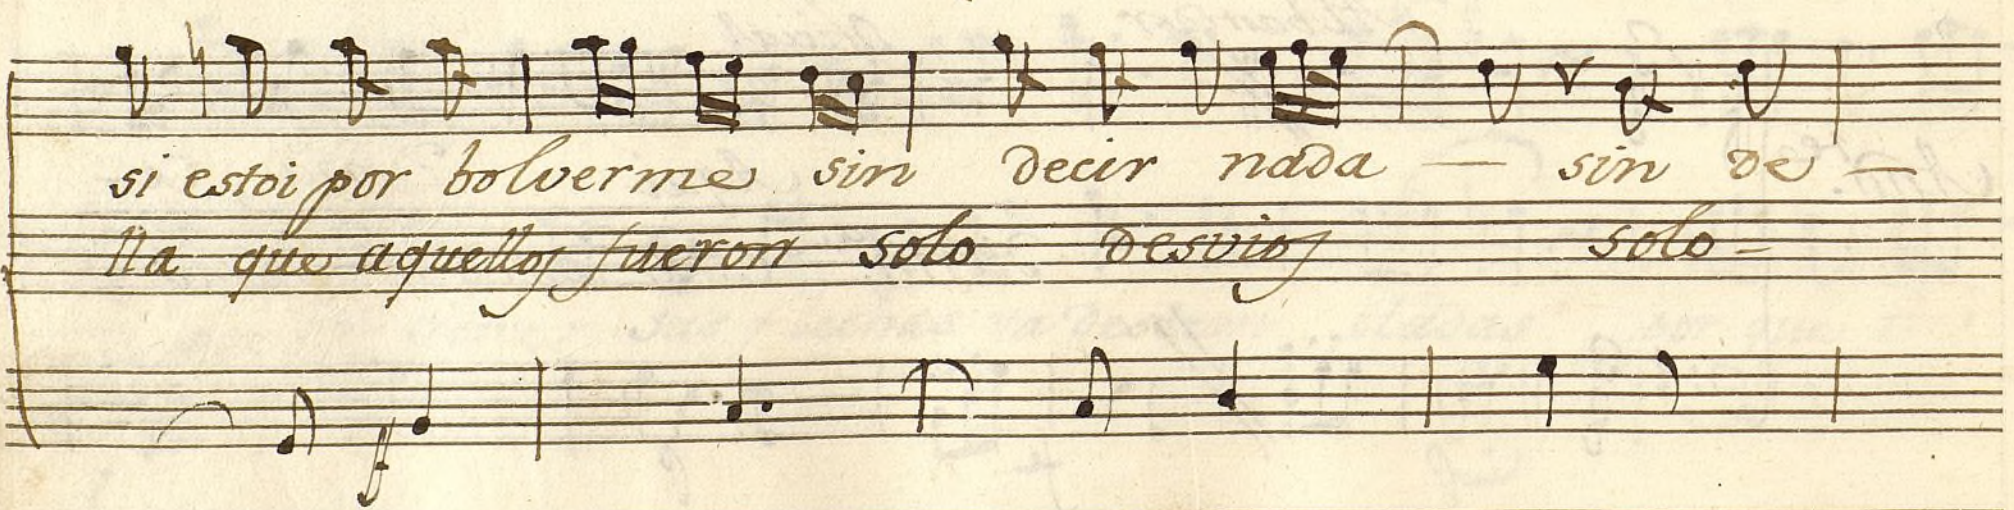 si estoi por bolverme sin decir nada — sin de —
lla que aquellos fueron solo desvios solo -